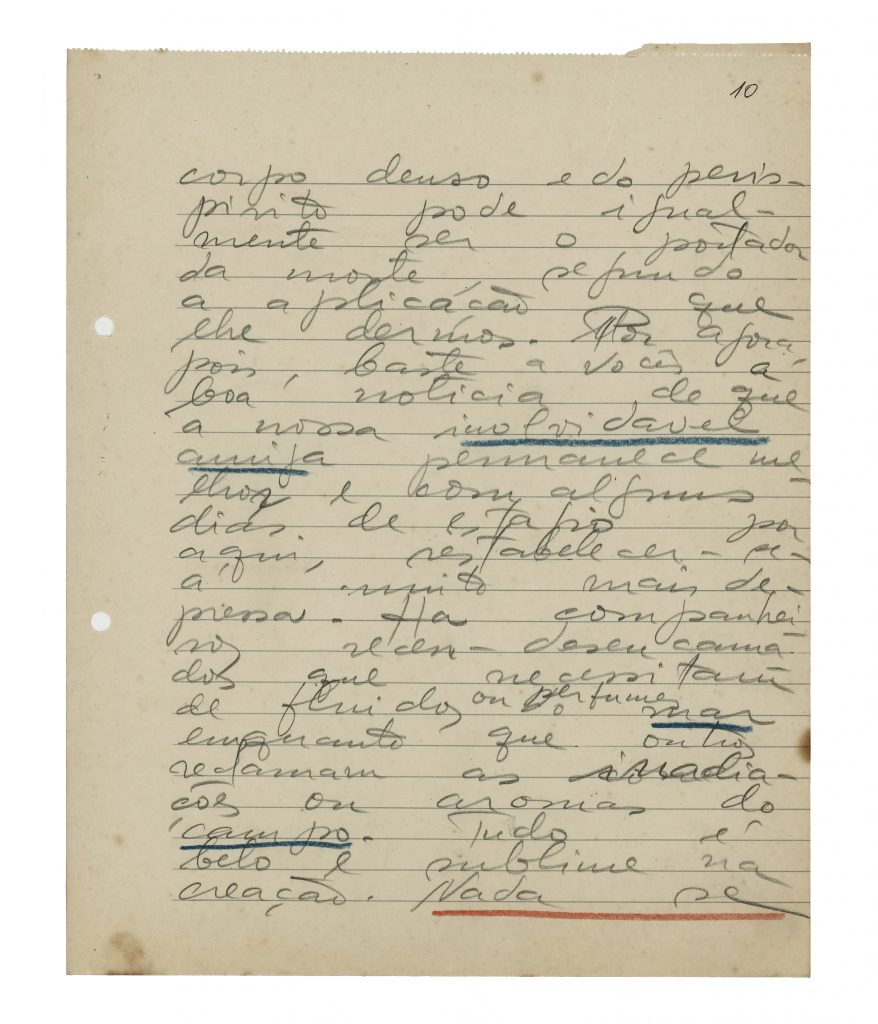 10
corpo denso e do peris-
pirito pode igual-
mente ser o portador
da morte, segundo
a aplicacão que
lhe dermos. Por agora,
pois, baste a vocês a
boa noticia de que
a nossa inolvidavel
amiga permanece me-
lhor e com alguns
dias de estagio por
aqui, restabelecer-se-
á muito mais de-
pressa. Ha companhei-
ros recen-desencarna-
dos que necessitam
de fluidos ou perfume do mar
enquanto que outros
reclamam as irradia-
ções ou aromas do
campo. Tudo é
belo e sublime na
creação. Nada se